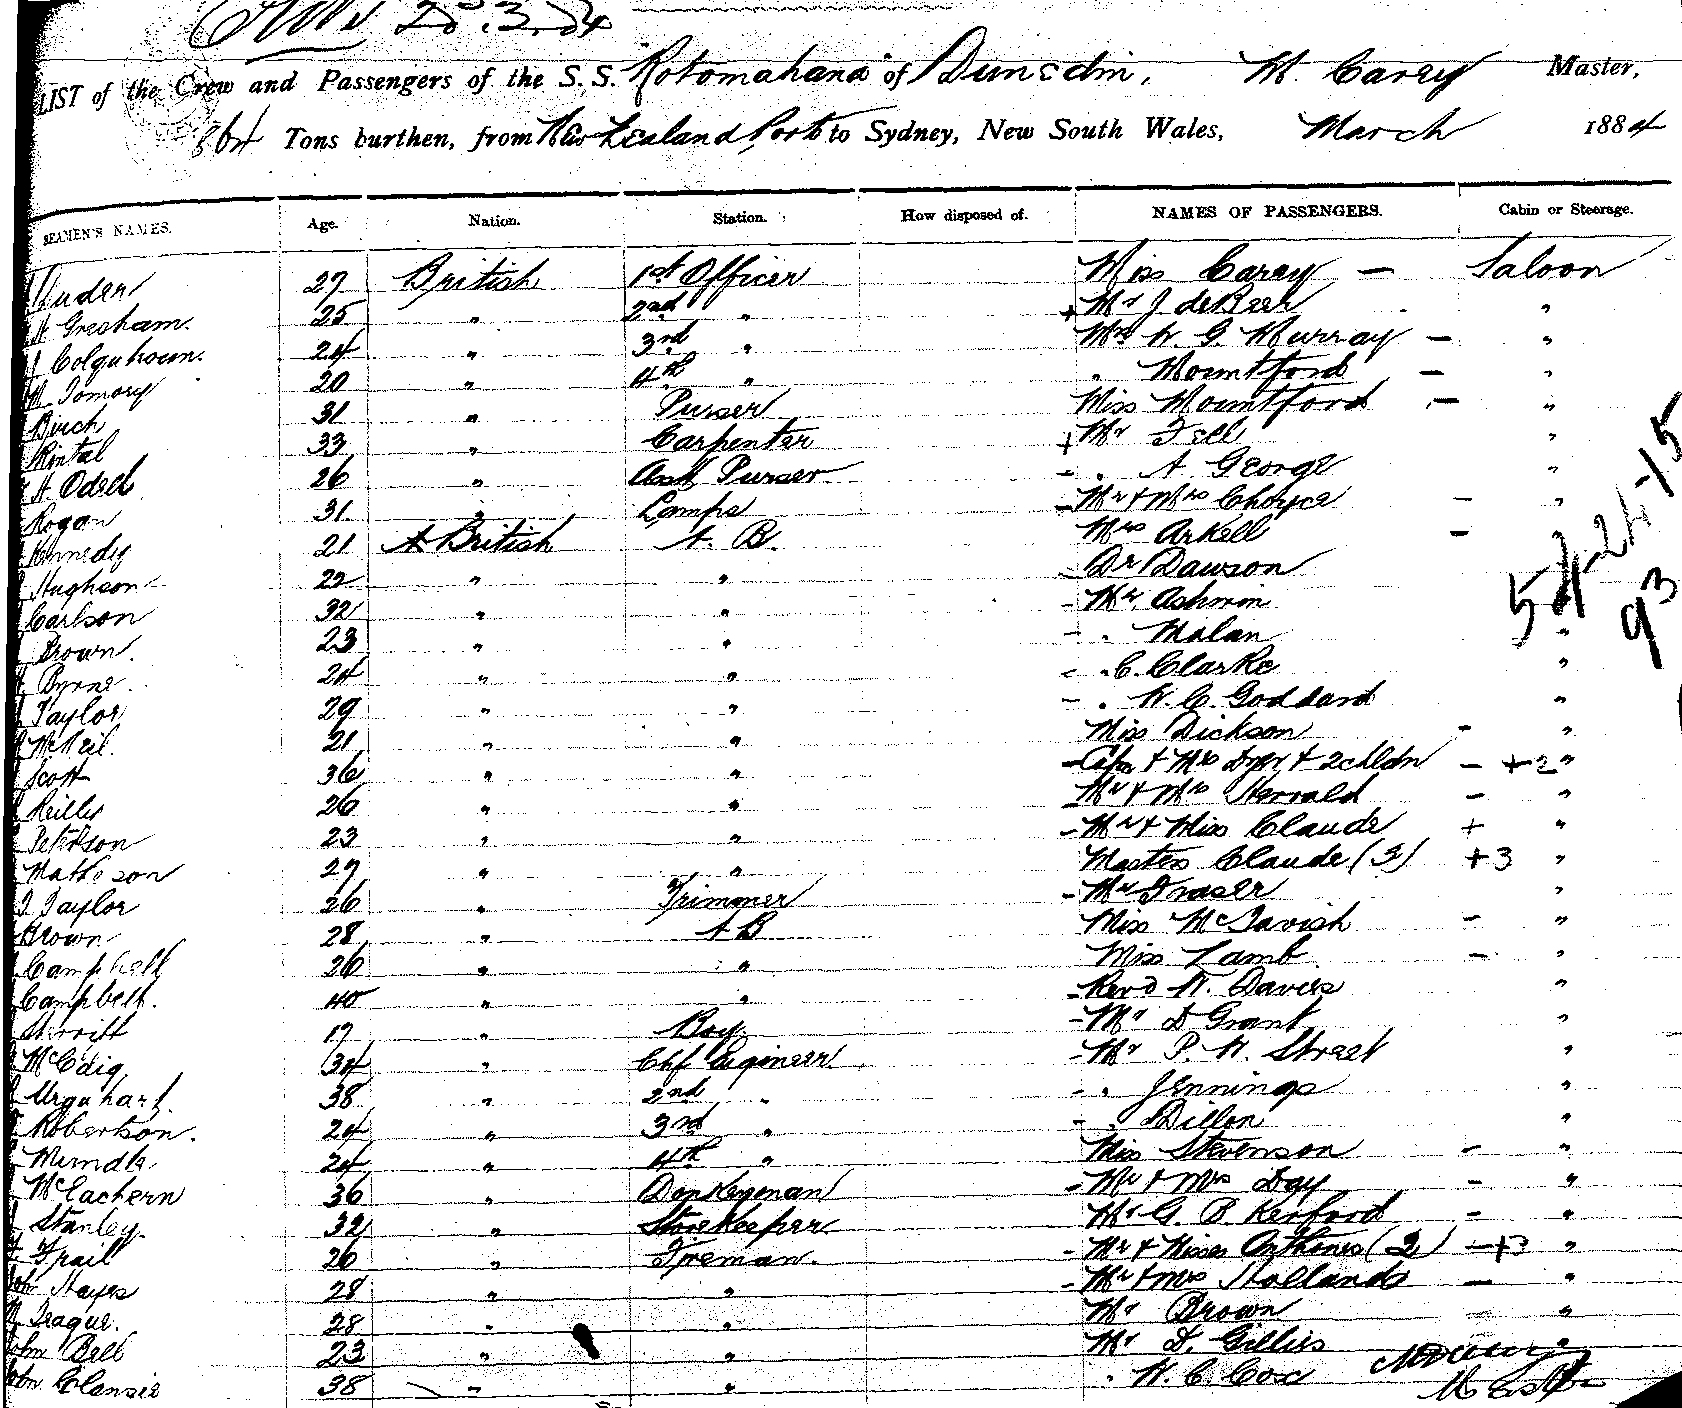 LIST of the Crew and Passengers of the S.S. "Rotomahana" of Dunedin, M. Carey Master,
864 Tons burthen, from New Zealand Ports to Sydney, New South Wales, March 1884
SEAMEN'S NAMES. Age. Nation. Station. How disposed of. NAMES OF PASSENGERS. Cabin or Steerage.
27 British 1st Officer Miss Carey — Saloon
Gresham. 25 " 2nd " + Mr J deBeer "
Colquhoun. 24 " 3rd " Mrs W. G. Murray — "
Tomory 20 " 4th " " Mountford — "
Birch 31 " Purser Miss Mountford — "
Rintal 33 " Carpenter + Mr Fell "
26 " Asst Purser - " A. George "
Rogan 31 " Lamps - Mr & Mrs Choyce - "
Kennedy 21 British A. B. Mrs Arkell - "
Hughson 22 " " Dr Dawson "
Carlson 32 " " - Mr Ashwin "
Brown. 23 " " - " Malan "
Byrne. 24 " " - " C. Clarke "
Taylor 29 " " - " W. C. Goddard "
McNeil. 21 " " Miss Dickson - "
Scott 36 " " - Capn & Mrs Dyer & 2 chldn - +2 "
Reilly 26 " " Mr & Mrs Herrald - "
Peterson 23 " " - Mr & Miss Claude + "
Matheson 27 " " Masters Claude (3) +3 "
Taylor 26 " Trimmer - Mr Fraser "
Brown 28 " A B Miss McTavish - "
Campbell 26 " " Miss Lamb - "
Campbell. 40 " " - Revd W. Davies "
17 " Boy. - Mr D Grant "
34 " Chf Engineer - Mr P. W. Street "
Urquhart. 38 " 2nd " - " Jennings "
Robertson. 24 " 3rd " - " Dillon "
24 " 4th " Miss Stevenson - "
McEachern 36 " Donkeyman - Mr & Mrs Day - "
Stanley. 32 " Storekeeper Mr G. B. Kerford - "
Trail 26 " Fireman. - Mr & Misses (2) "
John Hayes 28 " " - Mr & Mrs Hollands — "
Teague. 28 " " Mr Brown "
John Bell 23 " " Mr D. Gillies "
John Clansie 38 " " " W. C. Cox
93